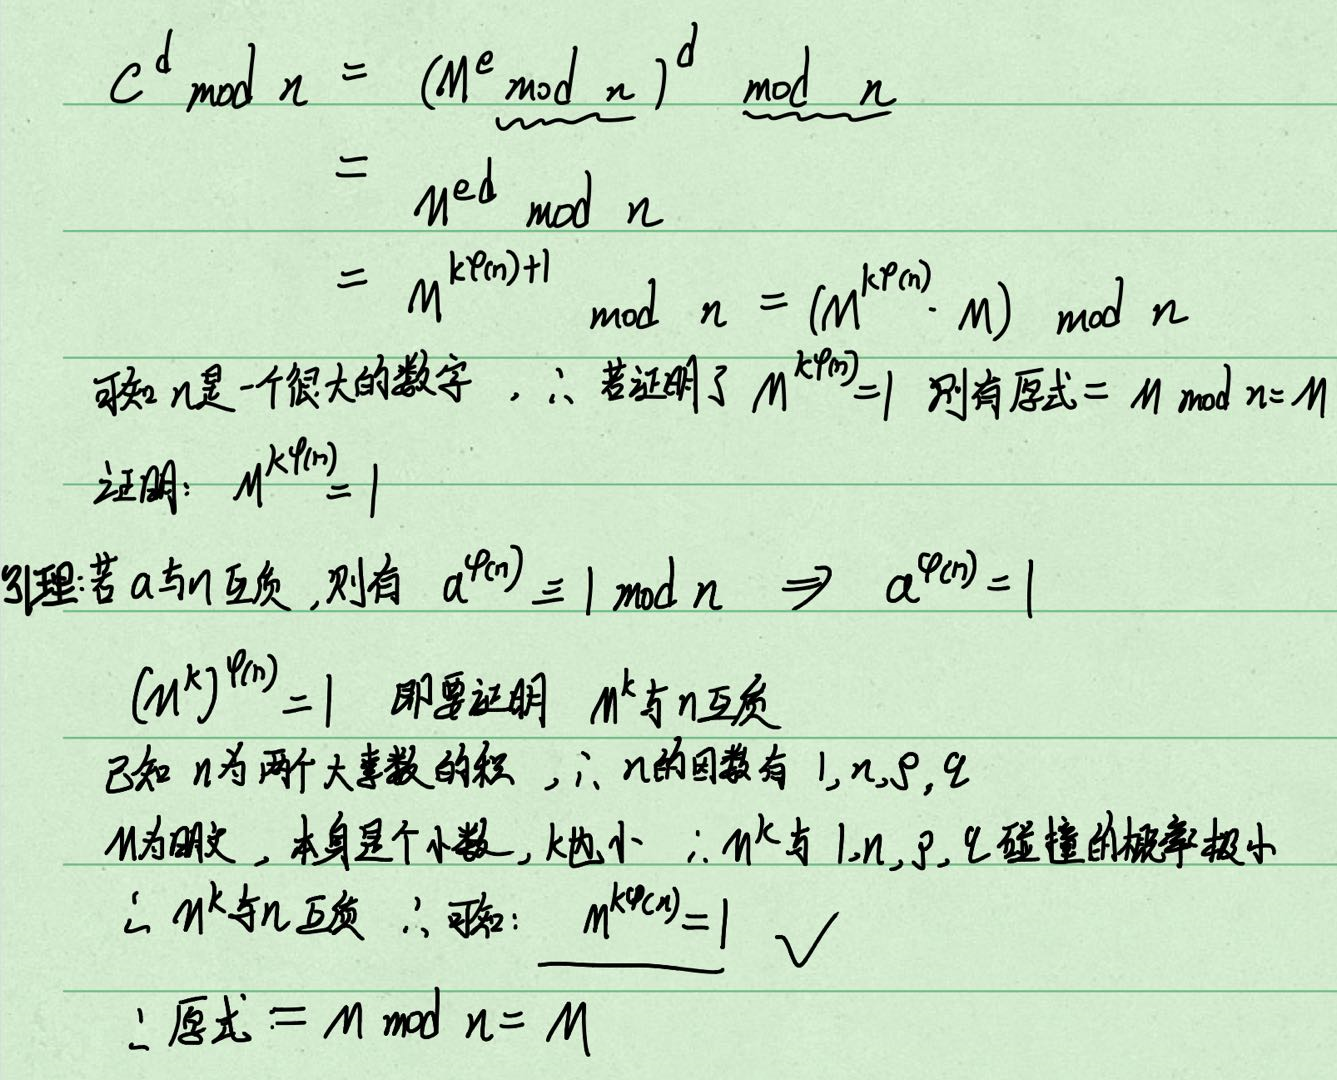 C^d mod n = (M^e mod n)^d mod n
= M^{ed} mod n
= M^{kφ(n)+1} mod n = (M^{kφ(n)} · M) mod n
可知 n是一个很大的数字，∴ 若证明了 M^{kφ(n)}=1 则有原式= M mod n=M
证明: M^{kφ(n)} = 1
引理:若 a与n互质,则有 a^{φ(n)} ≡ 1 mod n ⇒ a^{φ(n)} = 1
(M^k)^{φ(n)} = 1 即要证明 M^k与n互质
已知 n为两个大素数的积，∴ n的因数有 1,n,p,q
M为明文，本身是个小数,k也小 ∴ M^k与 1,n,p,q 碰撞的概率极小
∴ M^k与n互质 ∴ 可知: M^{kφ(n)}=1 ✓
∴ 原式 = M mod n = M